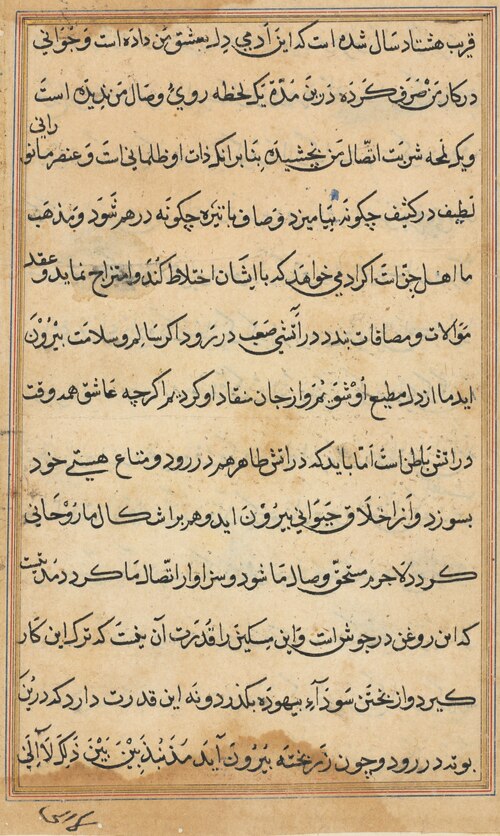 قریب هشتاد سال شده است که این آدمی دل بعشق من داده است وجوانی
در کار من صرف کرده درین مدة یک لحظه روی وصال من ندیده است
رانی
ویک لمحه شربت اتصال من نچشیده بنابر انکه ذات او ظلمانی است وعنصر ما نو
لطیف در کثیف چکونه بیامیزد وصاف با تیره چکونه در هم شود وبمذهب
ما اهل جنات اکر ادمی خواهد که با ایشان اختلاط کند وامتزاج نماید وعقد
موالات ومصافات بندد در آتشی صعب در رود اکر سالم وسلامت بیرون
اید ما از دل مطیع او شویم واز جان منقاد او کردیم اکرچه عاشق همه وقت
در اتش باطن است اما باید که در اتش ظاهر هم در رود ومتاع هستی خود
بسوزد واز اخلاق حیوانی بیرون اید وهم بر اشکال ما روحانی
کردد لاجرم مستحق وصال ما شود وسزاوار اتصال ما کردد مدتیست
که این روغن در جوش است واین مسکین را قدرت آن نیست که ترک این کار
کیرد واز پختن سوداء بیهوده بکذرد ونه این قدرت دارد که درین
بوته در رود وچون زر پخته بیرون آید مذبذبین بین ذلک لا الی